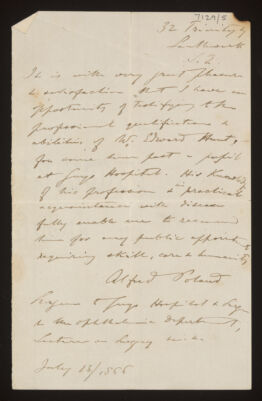 7129/5
32 Trinity Sq
Southwark
S.E.
It is with very great pleasure
& satisfaction that I have an
opportunity of testifying to the
professional qualifications &
abilities of Mr. Edward Hunt,
for some time past a pupil
at Guys Hospital. His Knowledge
of his profession & practical
acquaintance with disease
fully enable me to recommend
him for any public appointment
requiring skill, care & humanity
Alfred Poland
Surgeon to Guys Hospital & Surgn
to the Ophthalmic Department,
Lecturer on Surgery
July 13/